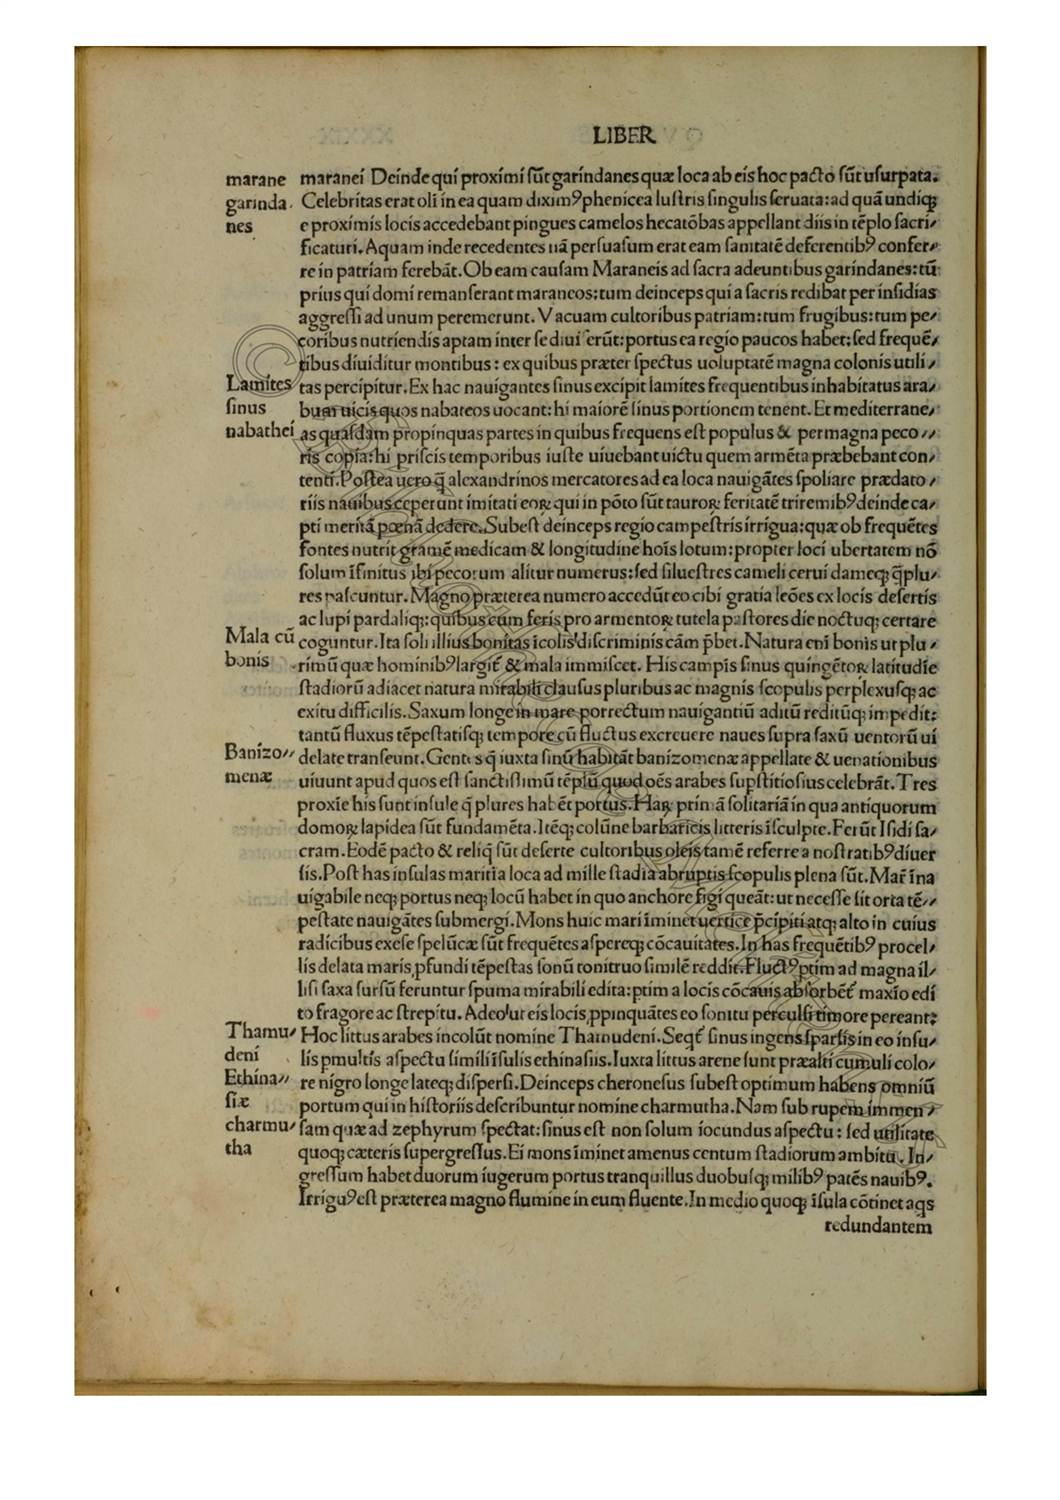 LIBER
marane
garinda
nes
maranei Deinde qui proximi sūt garindanes quæ loca ab eis hoc pacto sūt usurpata.
Celebritas erat oli in ea quam diximꝰ phenicea lustris singulis seruata: ad quā undiqꝫ
e proximis locis accedebant pingues camelos hecatōbas appellant diis in tēplo sacri/
ficaturi. Aquam inde recedentes nā persuasum erat eam sanitatē deferentibꝰ confer/
re in patriam ferebāt. Ob eam causam Maraneis ad sacra adeuntibus garindanes: tū
prius qui domi remanserant maraneos: tum deinceps qui a sacris redibāt per insidias
aggressi ad unum peremerunt. Vacuam cultoribus patriam: tum frugibus: tum pe/
coribus nutriendis aptam inter se diuiserūt: portus ea regio paucos habet: sed frequē/
tibus diuiditur montibus: ex quibus præter spectus uoluptatē magna colonis utili/
Lamites
sinus
nabathei
tas percipitur. Ex hac nauigantes sinus excipit lamites frequentibus inhabitatus ara/
bum uicis quos nabateos uocant: hi maiorē sinus portionem tenent. Et mediterrane/
as quasdam propinquas partes in quibus frequens est populus & permagna peco//
ris copia: hi priscis temporibus iuste uiuebant uictu quem armēta præbebant con/
tenti. Postea uero q̄ alexandrinos mercatores ad ea loca nauigātes spoliare prædato/
riis nauibus ceperunt imitati eoꝝ qui in pōto sūt tauroꝝ feritatē triremibꝰ deinde ca/
pti meritā pœnā dedere. Subest deinceps regio campestris irrigua: quæ ob frequētes
fontes nutrit gramē medicam & longitudine hoīs lotum: propter loci ubertatem nō
solum īfinitus ibi pecorum alitur numerus: sed siluestres cameli cerui dameqꝫ q̄plu/
res pascuntur. Magno præterea numero accedūt eo cibi gratia leōes ex locis desertis
ac lupi pardaliqꝫ: quibus cum feris pro armentoꝝ tutela pastores die noctuqꝫ certare
Mala cū
bonis
coguntur. Ita soli illius bonitas īcolis discriminis cām p̄bet. Natura eni bonis ut plu/
rimū quæ hominibꝰ largit̄ & mala immiscet. His campis sinus quingētoꝝ latitudīe
stadiorū adiacet natura mirabili clausus pluribus ac magnis scopulis perplexusqꝫ ac
exitu difficilis. Saxum longe in mare porrectum nauigantiū aditū reditūqꝫ impedit:
tantū fluxus tēpestatisqꝫ tempore cū fluctus excreuere naues supra saxū uentorū ui
Banizo//
menæ
delate transeunt. Gentes q̄ iuxta sinū habitāt banizomenæ appellate & uenationibus
uiuunt apud quos est sanctissimū tēplū quod oēs arabes supstitiosius celebrāt. Tres
proxīe his sunt insule q̄ plures habēt portus. Haꝝ primā solitariā in qua antiquorum
domoꝝ lapidea sūt fundamēta. Itēqꝫ colūne barbaricis litteris īsculpte. Ferūt Isidi sa/
cram. Eodē pacto & reliq̄ sūt deserte cultoribus oleis tamē referre a nostratibꝰ diuer
sis. Post has insulas maritīa loca ad mille stadia abruptis scopulis plena sūt. Mar̄ īna
uigabile neqꝫ portus neqꝫ locū habet in quo anchore figi queāt: ut necesse sit orta tē//
pestate nauigātes submergi. Mons huic mari īminet uertice p̄cipiti atqꝫ alto in cuius
radicibus exese spelūcæ sūt frequētes aspereqꝫ cōcauitates. In has frequētibꝰ procel/
lis delata maris ꝓfundi tēpestas sonū tonitruo similē reddit. Fluctꝰ ptim ad magna il/
lisi saxa sursū feruntur spuma mirabili edita: ptim a locis cōcauis absorbēt̄ maxīo edi
to fragore ac strepitu. Adeo ut eis locis ꝓpinquātes eo sonitu perculsi timore pereant:
Thamu/
deni
Ethina//
siæ
charmu/
tha
Hoc littus arabes incolūt nomine Thamudeni. Seqt̄ sinus ingens sparsis in eo insu/
lis pmultis aspectu simili īsulis ethinasiis. Iuxta littus arene sunt præalti cumuli colo/
re nigro longe lateqꝫ dispersi. Deinceps cheronesus subest optimum habens omniū
portum qui in historiis describuntur nomine charmutha. Nam sub rupem immen/
sam quæ ad zephyrum spectat: sinus est non solum iocundus aspectu: sed utilitate
quoqꝫ cæteris supergressus. Ei mons īminet amenus centum stadiorum ambitu. In/
gressum habet duorum iugerum portus tranquillus duobusqꝫ milibꝰ patēs nauibꝰ.
Irriguꝰ est præterea magno flumine in eum fluente. In medio quoqꝫ īsula cōtinet aqs
redundantem